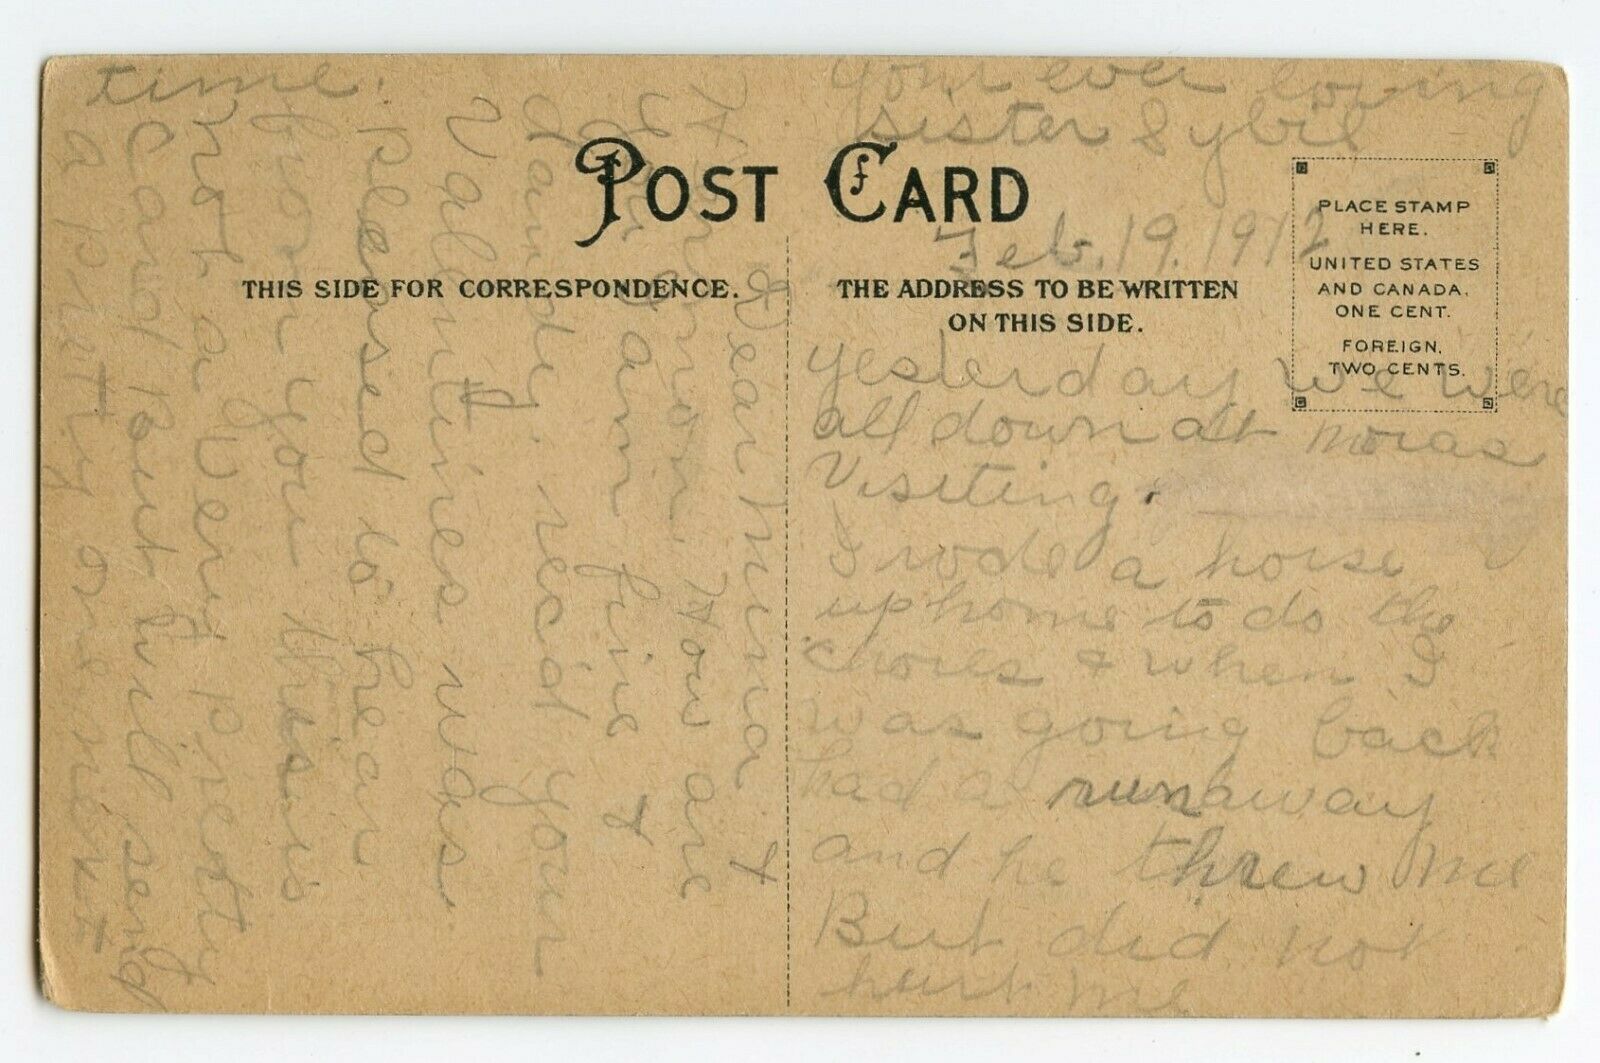 POST CARD
THIS SIDE FOR CORRESPONDENCE.
THE ADDRESS TO BE WRITTEN
ON THIS SIDE.
PLACE STAMP
HERE.
UNITED STATES
AND CANADA,
ONE CENT.
FOREIGN,
TWO CENTS.
Feb. 19. 1912
Dear Mina &
Vernon. How are
you I am fine &
dandy. rec'd your
Valentines was
pleased to hear
from you this is
not a very pretty
card But will send
a pretty one next
time.
yesterday we were
all down at Moras
Visiting.
I rode a horse
up home to do the
chores & when I
was going back
had a runaway
and he threw me
But did not
hurt me
Your ever loving
sister Sybil